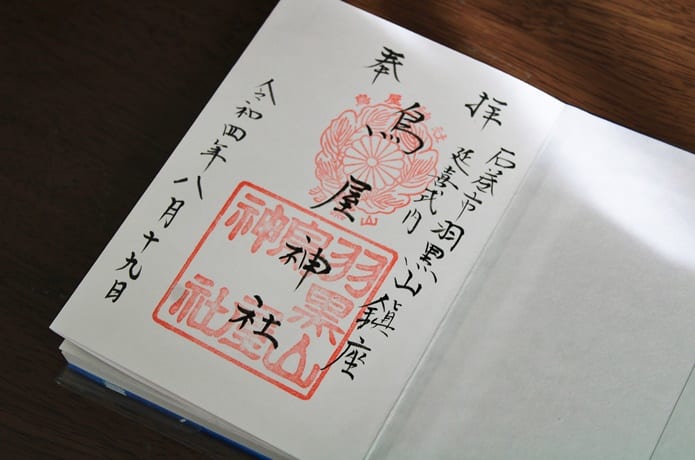 奉拝
石巻市羽黒山鎮座
延喜式内
鳥屋神社
令和四年八月十九日
羽黒山
鳥屋
神社